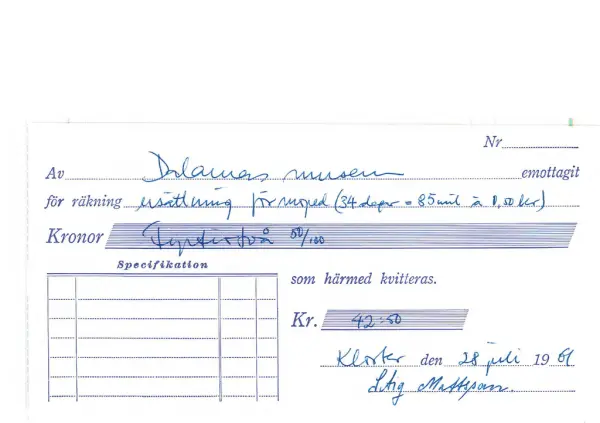 Nr
Av Dalarnas museum emottagit
för räkning ersättning för moped (34 dagar = 85 mil à 0,50 kr)
Kronor Fyrtiotvå 50/100
Specifikation
som härmed kvitteras.
Kr. 42:50
Kloster den 28 juli 1961
Stig Mattsson.